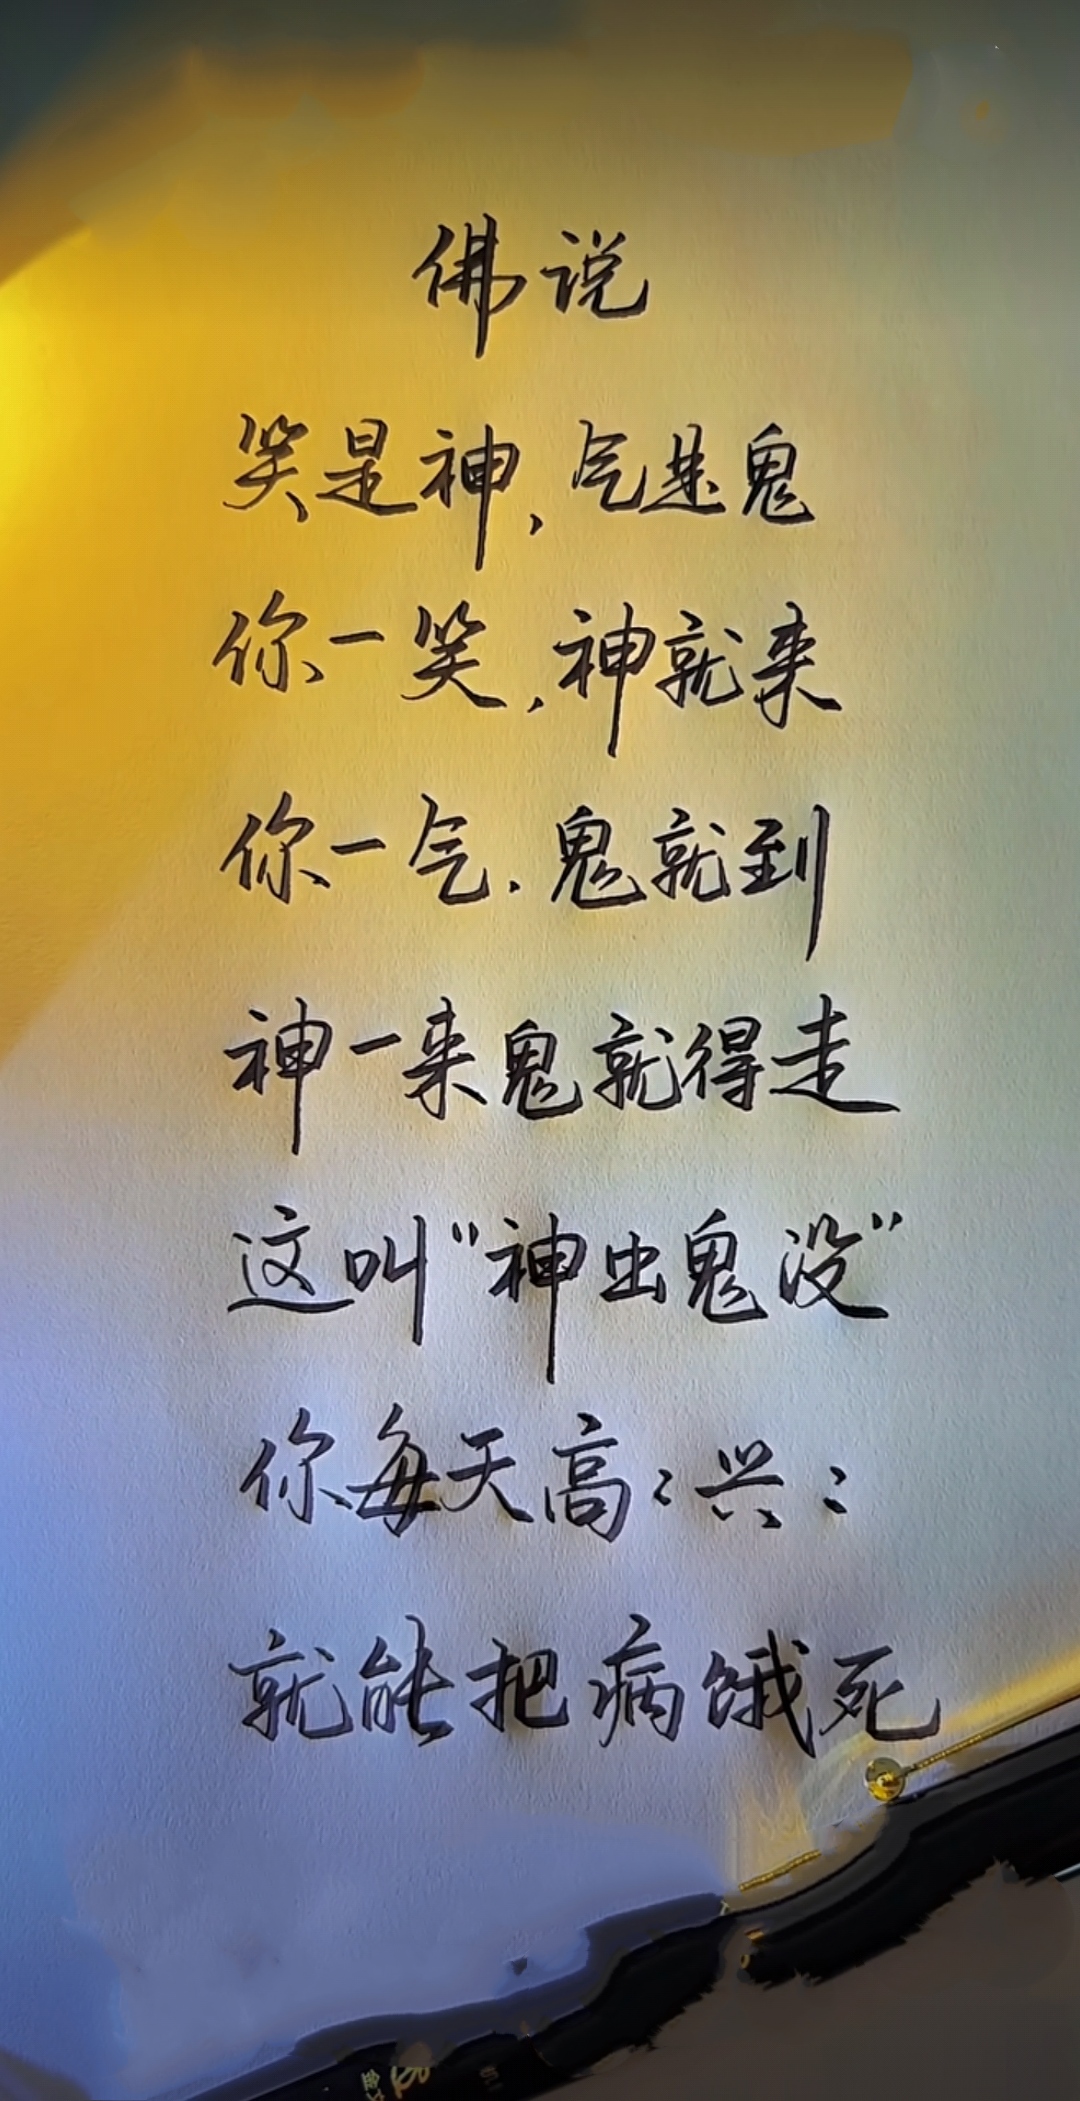 佛说
笑是神,气是鬼
你一笑,神就来
你一气.鬼就到
神一来鬼就得走
这叫"神出鬼没"
你每天高:兴:
就能把病饿死